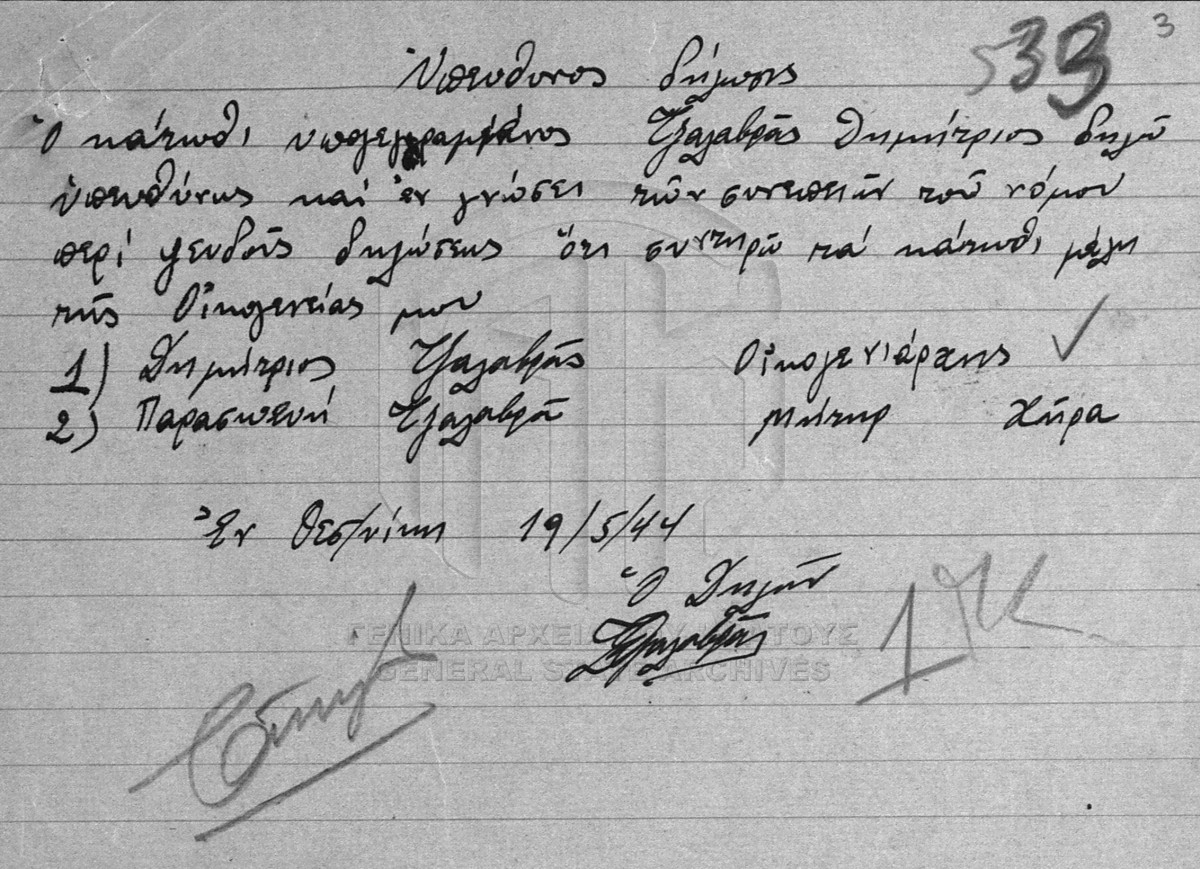 533 3
Ὑπευθυνος δήλωσις
Ὁ κάτωθι υπογεγραμμένος Τζαλαβρᾶς Δημήτριος δηλῶ
ὑπευθύνως καί ἐν γνώσει τῶν συνεπειῶν τοῦ νόμου
περί ψευδοῦς δηλώσεως ὅτι συντηρῶ τά κάτωθι μέλη
τῆς Οἰκογενείας μου
1) Δημήτριος Τζαλαβρᾶς Οἰκογενιάρχης
2) Παρασκευή Τζαλαβρᾶ Μήτηρ Χήρα
Ἐν Θεσ/νίκη 19/5/44
Ὁ Δηλῶν
Τζαλαβρᾶς
ΓΕΝΙΚΑ ΑΡΧΕΙΑ ΤΟΥ ΚΡΑΤΟΥΣ
GENERAL STATE ARCHIVES